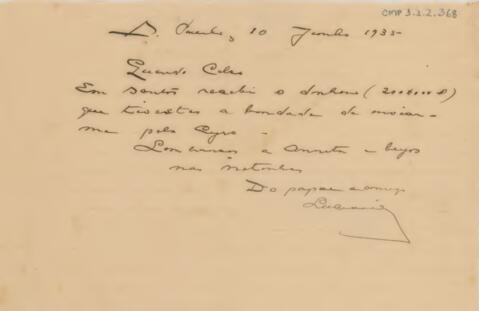 CMP 3.2.2.368
S. Paulo, 10 Junho 1935
Querido Celso
Em santos recebi o dinheiro (200$000)
que tivestes a bondade de enviar-
me pelo Cyro.
Lembranças a Anneta e beijos
nas netinhas
Do papae e amigo